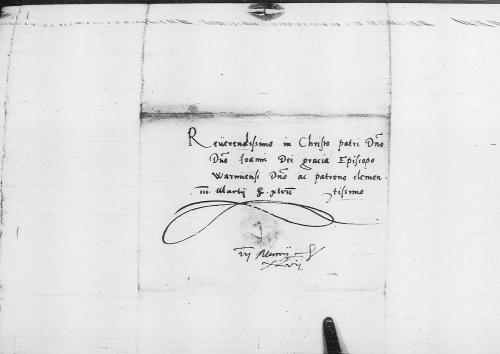 Reverendissimo in Christo patri Dño
Dño Joanni Dei gracia Episcopo
Warmiensi Dño ac patrono clemen-
iii Martij xlvii tissimo
Martij
xlvij